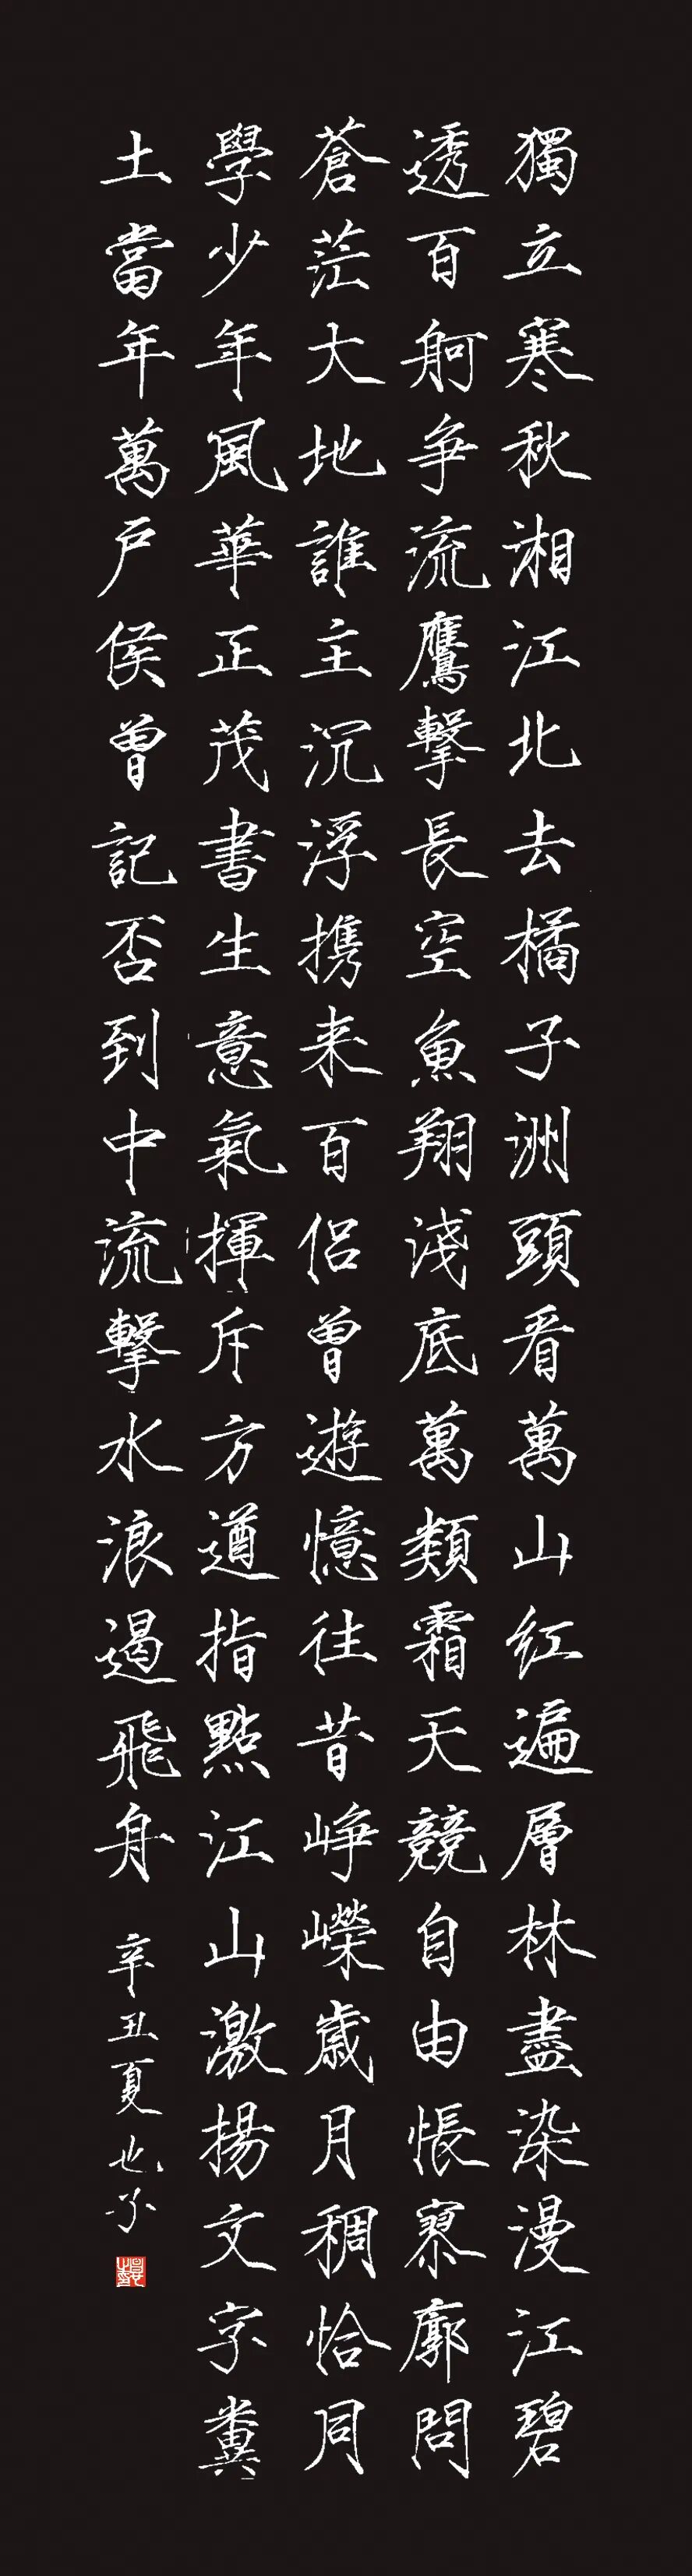 獨立寒秋湘江北去橘子洲頭看萬山红遍層林盡染漫江碧
透百舸争流鷹擊長空魚翔淺底萬類霜天競自由悵寥廓問
蒼茫大地誰主沉浮携来百侣曾遊憶往昔峥嶸歲月稠恰同
學少年風華正茂書生意氣揮斥方遒指點江山激揚文字糞
土當年萬户侯曾記否到中流擊水浪遏飛舟
辛丑夏也